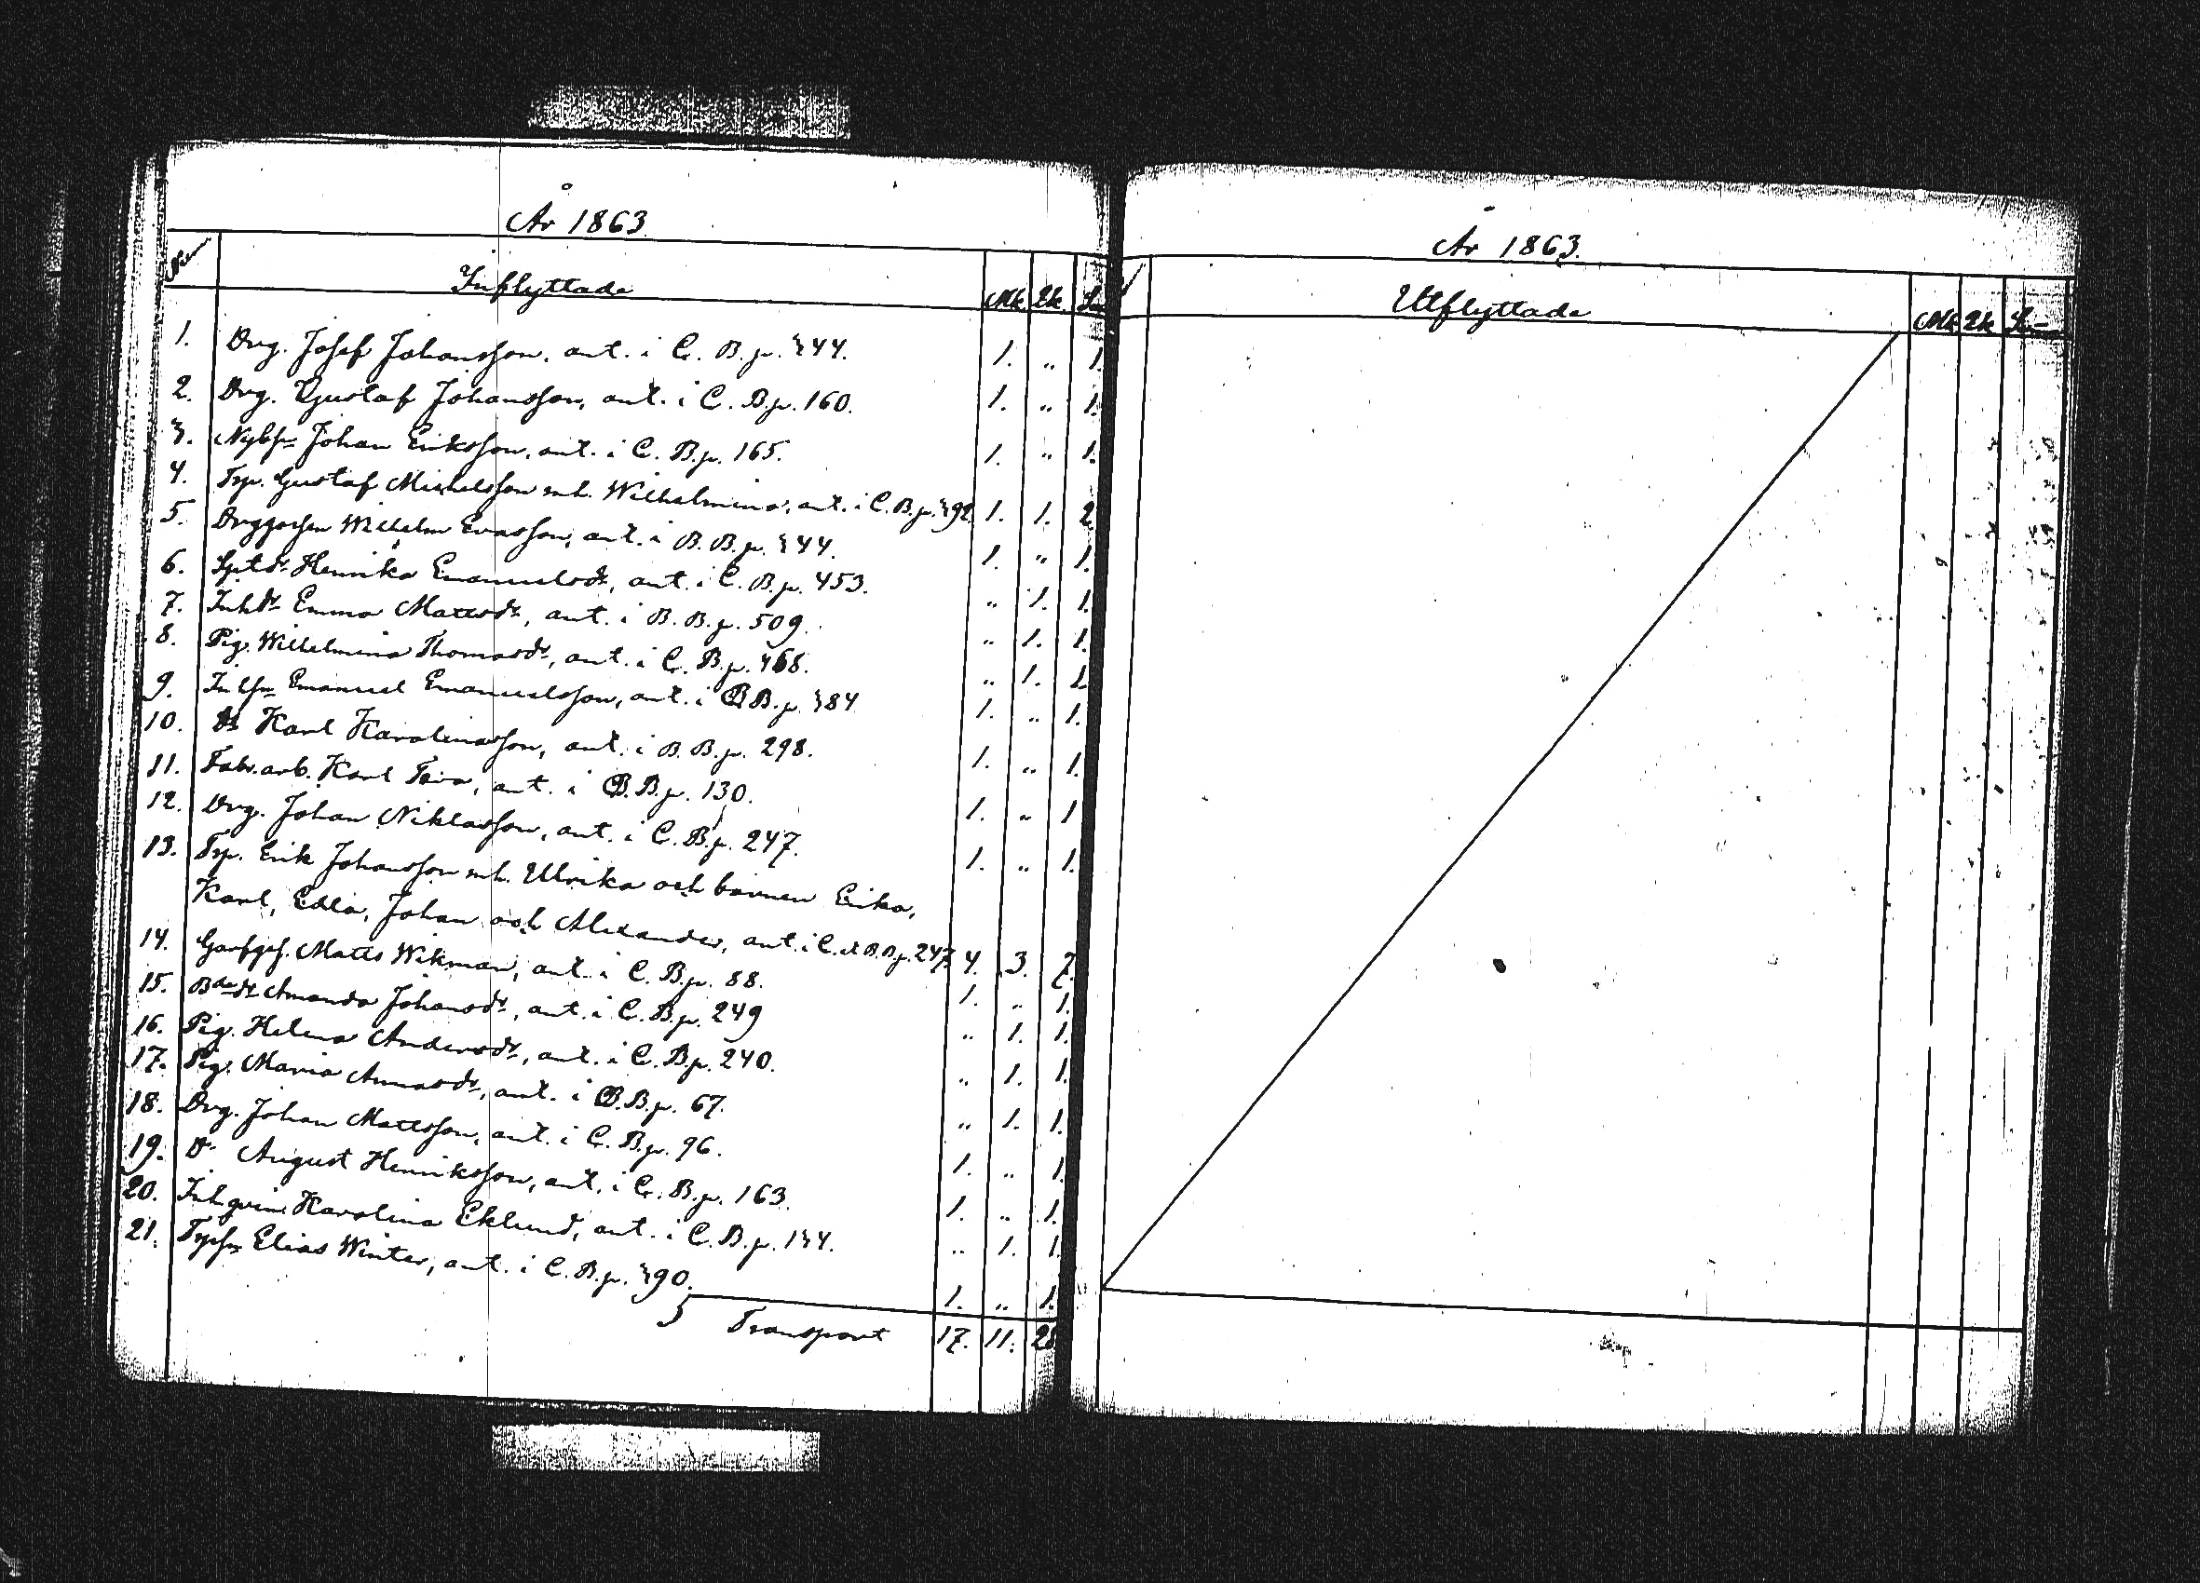 År 1863
Num Inflyttade Mk. Qk. S:a
1. Drg. Josef Johansson, ant. i C. B. p. 344. 1. „ 1.
2. Drg. Gustaf Johansson, ant. i C. B. p. 160. 1. „ 1.
3. Nybs:n Johan Eriksson, ant. i C. B. p. 165. 1. „ 1.
4. Trp. Gustaf Michelsson m.h. Wilhelmina, ant. i C. B. p. 392. 1. 1. 2.
5. Drggossen Wilhelm Evasson, ant. i B. B. p. 344. 1. „ 1.
6. Henrika Emanuelsdr, ant. i C. B. p. 453. „ 1. 1.
7. Inhdr Emma Mattsdr, ant. i B. B. p. 509. „ 1. 1.
8. Pig. Wilhelmina Thomasdr, ant. i C. B. p. 468. „ 1. 1.
9. Inhsn Emanuel Emanuelsson, ant. i B. B. p. 384 1. „ 1.
10. Ds Karl Karolinasson, ant. i B. B. p. 298. 1. „ 1.
11. Fabr. arb. Karl ant. i B. B. p. 130. 1. „ 1
12. Drg. Johan Niklasson, ant. i C. B. p. 247. 1. „ 1.
13. Trp. Erik Johansson m.h. Ulrika och barnen Erika,
Karl, Edla, Johan och Alexander, ant. i C. et B. B. p. 247. 4. 3. 7.
14. Garfges. Matts Wikman, ant. i C. B. p. 88. 1. „ 1.
15. Bdedr Amanda Johansdr, ant. i C. B. p. 249 „ 1. 1.
16. Pig. Helena Andersdr, ant. i C. B. p. 240. „ 1. 1.
17. Pig. Maria Annasdr, ant. i B. B. p. 67. „ 1. 1.
18. Drg. Johan Mattsson, ant. i C. B. p. 96. 1. „ 1.
19. D:o August Henriksson, ant. i C. B. p. 163. 1. „ 1.
20. Inhqvin. Karolina Eklund, ant. i C. B. p. 134. „ 1. 1.
21. Trpsn Elias Winter, ant. i C. B. p. 390. 1. „ 1.
Transport 17. 11. 28
År 1863.
Utflyttade Mk Qk S:a